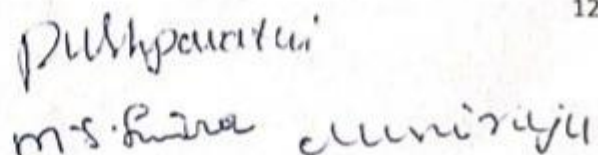 12
Pushpavathi
m.s.
Muniraju